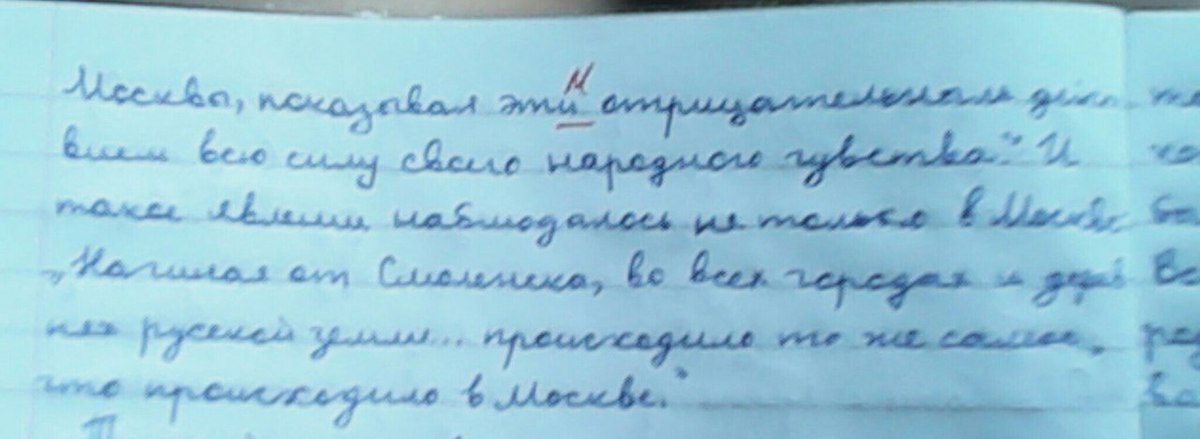 Москвы, показывая эти отрицательным дейст
м
вием всю силу своего народного чувства." И
такое явление наблюдалось не только в Москве
„Начиная от Смоленска, во всех городах и дерев
нях русской земли... происходило то же самое,
что происходило в Москве."